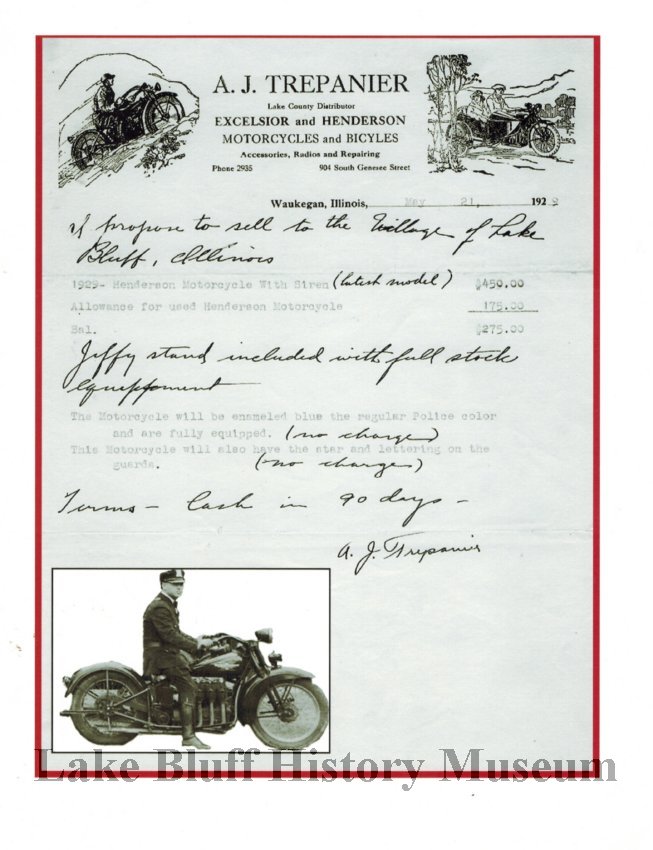 A. J. TREPANIER
Lake County Distributor
EXCELSIOR and HENDERSON
MOTORCYCLES and BICYLES
Accessories, Radios and Repairing
Phone 2935 904 South Genesee Street
Waukegan, Illinois, May 21, 1929
I propose to sell to the Village of Lake
Bluff, Illinois
1929- Henderson Motorcycle With Siren (latest model) $450.00
Allowance for used Henderson Motorcycle 175.00
Bal. $275.00
Jiffy stand included with full stock
equippment
The Motorcycle will be enameled blue the regular Police color
and are fully equipped. (no charge)
This Motorcycle will also have the star and lettering on the
guards. (no charge)
Terms - Cash in 90 days -
A. J. Trepanier
Lake Bluff History Museum